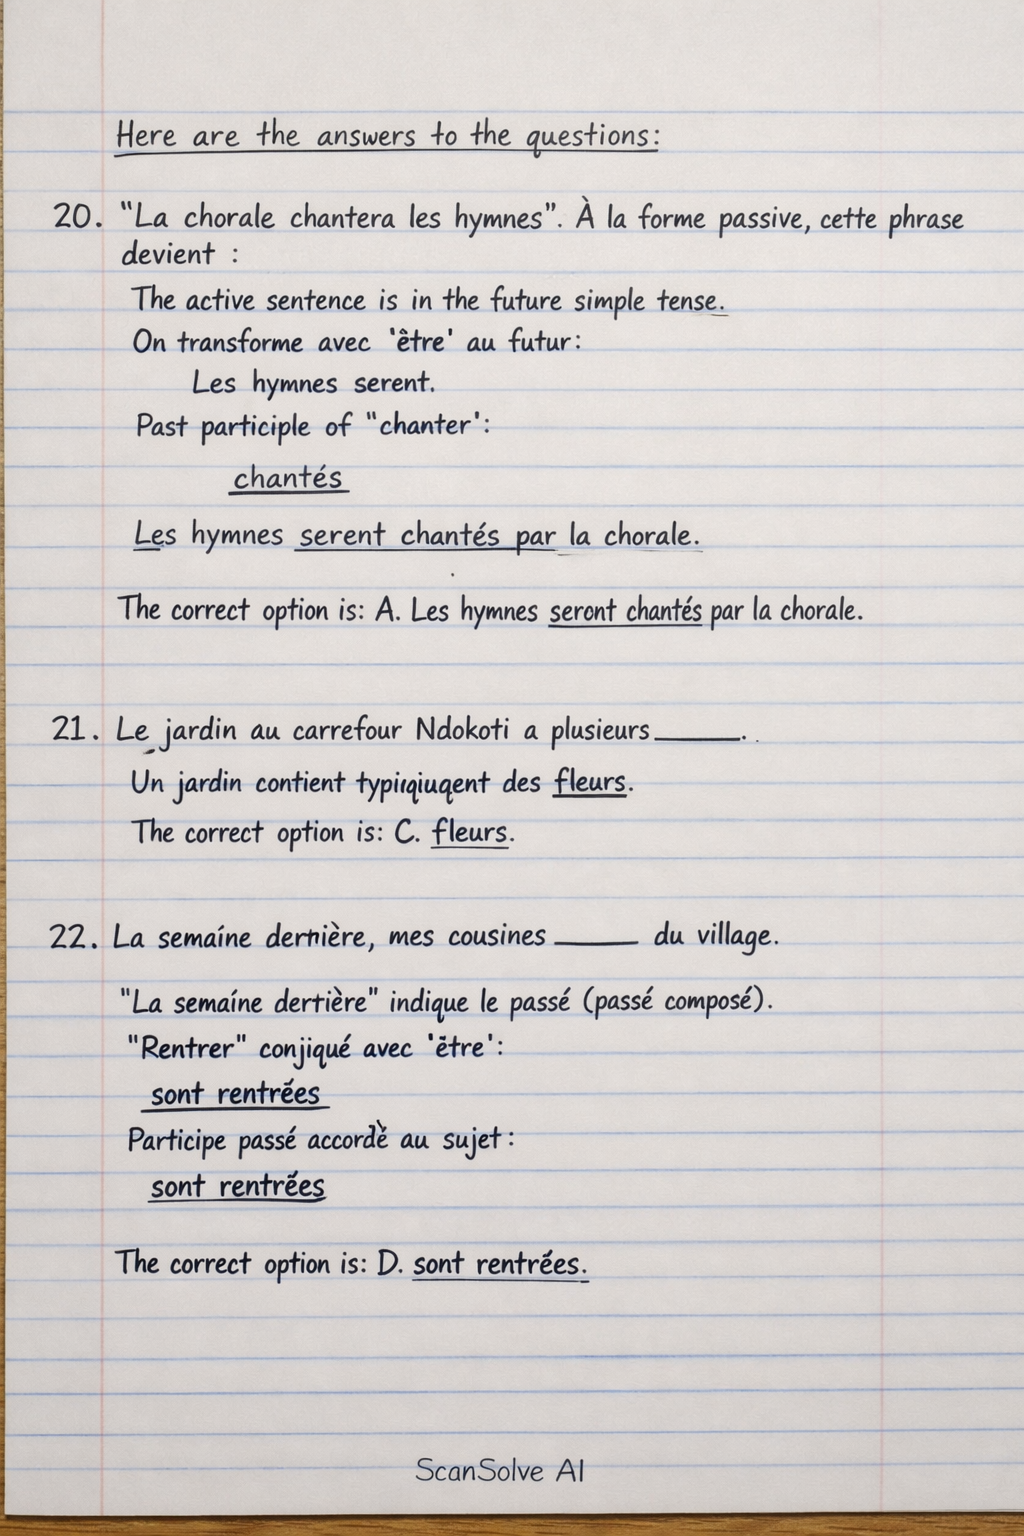 Here are the answers to the questions:
20. "La chorale chantera les hymnes". À la forme passive, cette phrase
devient :
The active sentence is in the future simple tense.
On transforme avec 'être' au futur:
Les hymnes serent.
Past participle of "chanter':
chantés
Les hymnes serent chantés par la chorale.
The correct option is: A. Les hymnes seront chantés par la chorale.
21. Le jardin au carrefour Ndokoti a plusieurs ______.
Un jardin contient typiqiuqent des fleurs.
The correct option is: C. fleurs.
22. La semaíne dernière, mes cousines ______ du village.
"La semaíne dertière" indique le passé (passé composé).
"Rentrer" conjiqué avec 'être':
sont rentrées
Participe passé accordè au sujet:
sont rentrées
The correct option is: D. sont rentrées.
ScanSolve AI